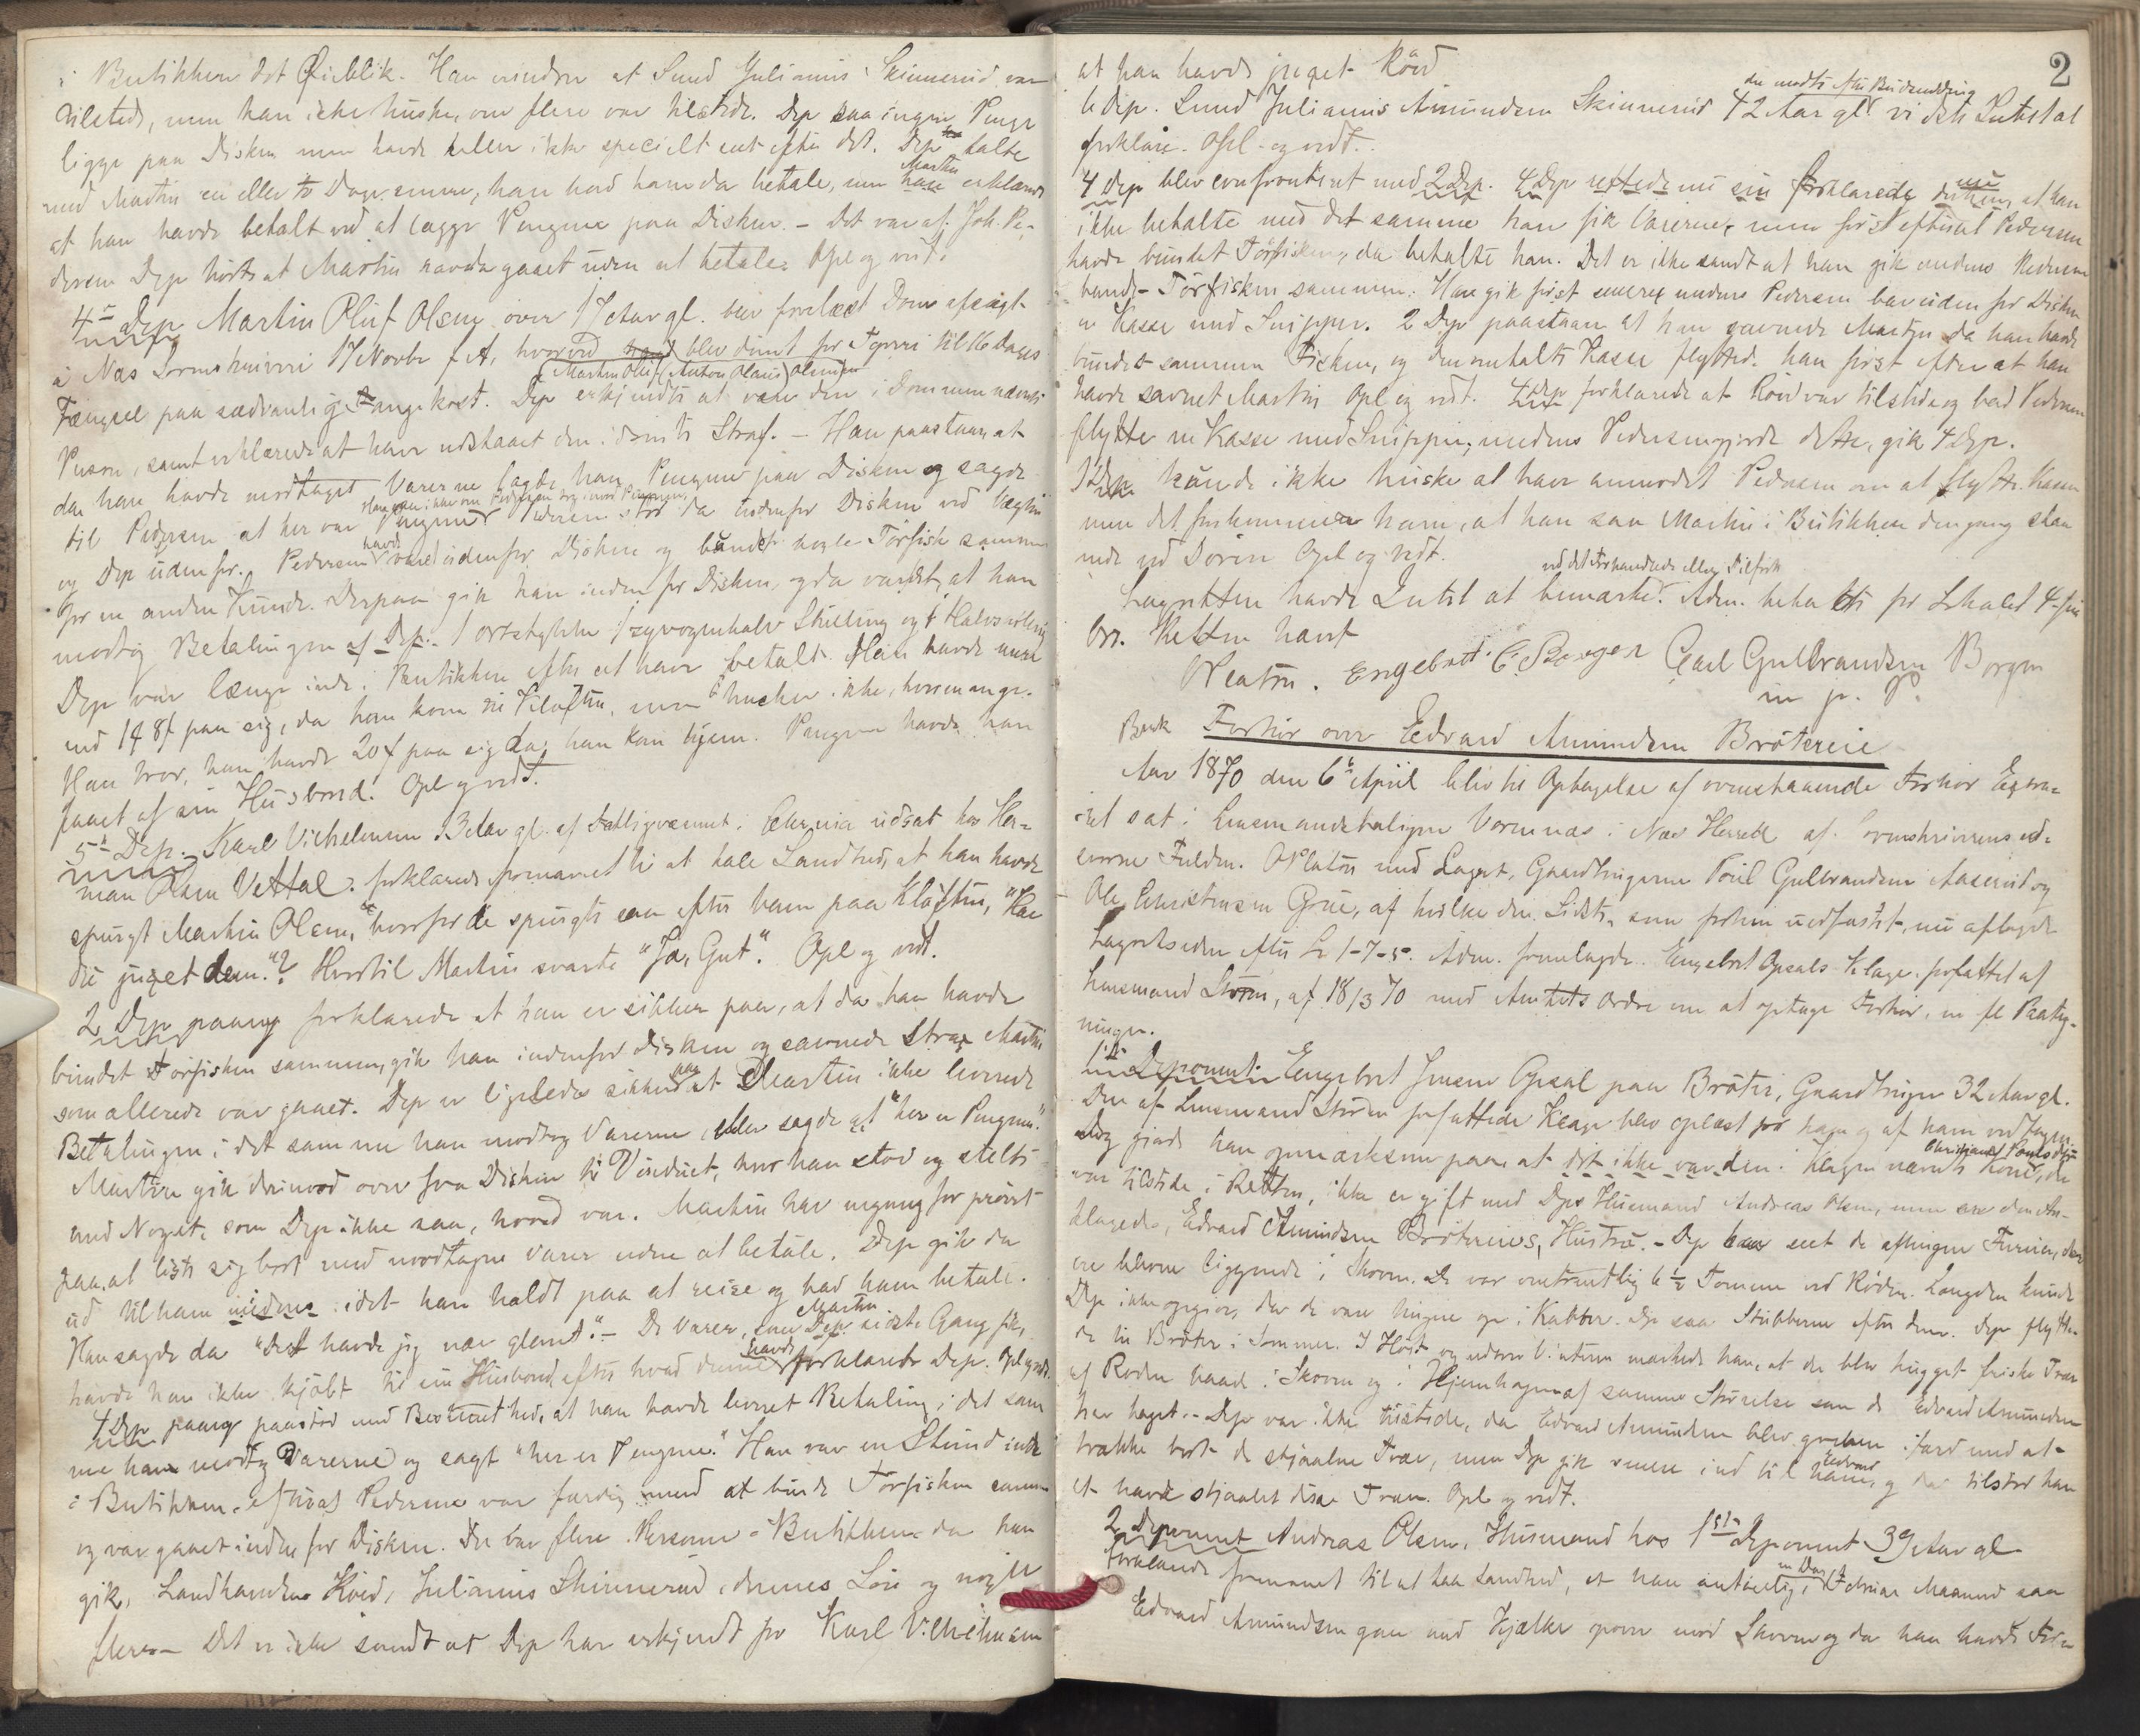 i Butikken det Øieblik. Han erindrer at Smed Julianus Skinnerud var
tilstede, men kan ikke huske, om flere var tilstede. Dep saa ingen Penge
ligge paa Disken men havde heller ikke specielt seet efter det. Dep talte
med Martin en eller to Dage senere, han bad ham da betale, men Martin erklærede
at han havde betalt ved at lægge Pengene paa Disken. - Det var af Joh. Pe-
dersen Dep hørte at Martin var gaaet uden at betale. Opl og vedt.
4de Dep Martin Oluf Olsen over 17 Aar gl. blev forelæst Dom afsagt
i Næs Sorenskriveri 17 Novbr f A, hvorved (Martin Oluf (Anton Olaus) Olsen) blev dømt for Tyveri til 16 Dages
Fængsel paa sædvanlig Fangekost. Dep erkjendte at være den i Dommen nævnte
Person, samt erklærede at have udstaaet den idømte Straf. - Han paastaar, at
da han havde modtaget Varerne lagde han Pengene paa Disken og sagde
til Pedersen at her var Pengene. Pedersen stod da indenfor Disken ved Vægten
og Dep udenfor. Pedersen havde været udenfor Disken og bundet nogle Tørfisk sammen
for en anden Kunde. Derpaa gik han inden for Disken, og da var det, at han
modtog Betalingen af Dep.
Dep var længe inde i Butikken efter at have betalt. Han havde mere
end 14 8/ paa sig, da han kom til Kløften, men husker ikke, hvormange.
Han tror, han havde 20 paa sig da han kom hjem. Pengene havde han
faaet af sin Husbond. Opl og vedt.
5te Dep. Karl Vilhelmsen af Fattigvæsenet i udsat hos Her-
man Olsen Vettal forklarede formanet til at tale Sandhed, at han havde
spurgt Martin Olsen, hvorfor de spurgte saa efter ham paa Kløften, "Har
du juget dem."? Hvortil Martin svarte "Ja, Gut". Opl og vedt.
2 Dep paany forklarede at han er sikker paa, at da han havde
bundet Tørfisken sammen, gik han indenfor Disken og savnede strax Martin
som allerede var gaaet. Dep er ligeledes sikker paa at Martin ikke leverede
Betalingen i det samme han modtog Varerne, eller sagde at "her er Pengene".
Martin gik derimod over fra Disken til Vinduet, hvor han stod og stelte
med Noget, som Dep ikke saa, hvad var. Martin har engang før prøvet
paa at liste sig bort med modtagne Varer uden at betale. Dep gik da
ud til ham idet han holdt paa at reise og bad ham betale.
Han sagde da "Det havde jeg nær glemt". - De Varer, som Martin sidste Gang fik,
havde han ikke kjøbt til sin Husbond efter hvad denne havde forklaret Dep. Opl og vedt.
4 Dep paany paastod med Bestemthed, at han havde leveret Betaling i det sam
me han modtog Varerne og sagt "her er Pengene." Han var en Stund inde
i Butikken, efterat Pedersen var færdig med at binde Tørfisken sammen
og var gaaet inden for Disken. Der var flere Personer i Butikken da han
gik, Landhandler Röed, Julianus Skinnerud, dennes Søn og nogle
flere. - Det er ikke sandt at Dep har erkjendt for Karl Vilhelmsen
2
at han havde juget Röed
6 Dep. Smed Julianus Amundsen Skinnerud 42 Aar gl. der mødte efter Budsending vidste Intet at
forklare. Opl. og vedt.
4 Dep blev confronteret med 2 Dep. 4 Dep rettede nu sin Forklaring derhen, at han
ikke betalte med det samme han fik Varerne, men først efterat Pedersen
havde bundet Tørfisken, da betalte han. Det er ikke sandt at han gik medens Pedersen
bandt Tørfisken sammen. Han gik først medens Pedersen bar udenfor Disken
en Kasse med Snipper. 2 Dep paastaar at han savnede Martin da han havde
bundet sammen Fisken, og den omtalte Kasse flyttede han først efter at han
havde savnet Martin Opl og vedt. 4 Dep forklarede at Röed var tilstede og bad Pedersen
flytte en Kasse med Snipper, medens Pedersen gjorde dette, gik 4 Dep.
1 Dep kunde ikke huske at have anmodet Pedersen om at flytte Kassen
men det forekommer ham, at han saa Martin i Butikken dengang staa
nede ved Døren Opl og vedt.
Lagrettten havde Intet at bemærke ved det Forhandlede eller Tilførte. Adm. betalte for Lokalet 4 ...
Ors. Retten hævet
Platou. Engebret E. Borgen Carl Gulbrandsen Borgen
m. p. P.
Berk Forhør over Edvard Amundsen Brötereie
Aar 1870 den 6te April blev til Optagelse af ovenstaaende Forhør Extra-
ret sat i Lensmandsboligen Vormnæs i Næs Herred af Sorenskriverens ed-
svorne Fuldm. O Platou med Lagret, Gaardbrugerne Poul Gulbrandsen Aaserud og
Ole Christensen Grue, af hvilke den Sidste, som forhen uedfæstet, nu aflagde
Lagretseden efter Lr 1-7-5. Adm. fremlagde Engebret Opsals Klage, forfattet af
Lensmand Storm, af 18/3 70 med Amtets Ordre om at optage Forhør, m fl Paateg-
ninger.
1ste Deponent Engebret Jensen Opsal paa Bröter, Gaardbruger 32 Aar gl.
Den af Lensmand Storm forfattede Klage blev oplæst for ham og af ham vedtagen.
Dog gjorde han opmærksom paa, at det ikke var den i Klagen nævnte Kone, Christiane Poulsdtr der
var tilstede i Retten, ikke er gift med Deps Husmand Andreas Olsen, men er den An-
klagede, Edvard Amundsen Brötereies, Hustru. - Dep har seet de afhugne Furuer, der
ere blevne liggende i Skoven. De var omtrentlig 6 1/2 Tomme ved Roden. Længden kunde
Dep ikke opgive, da de vare hugne op i Kabber. Dep saa Stubberne efter dem. Dep flytte-
de til Bröter i Sommer. I Høst og udover Vinteren mærkede han, at der blev hugget friske Træer
af Roden baade i Skoven og i Hjemhagen af samme Størrelse som de Edvard Amundsen
har taget. - Dep var ikke tilstede, da Edvard Amundsen blev greben ifærd med at
trække bort de stjaalne Træer, men Dep gik senere ind til Edvard, og da tilstod han
at have stjaalet disse Træer. Opl og vedt.
2 Deponent Andreas Olsen, Husmand hos 1ste Deponent 39 Aar gl
forklarede formanet til at tale Sandhed, at han en Dag i Februar Maaned saa
Edvard Amundsen gaa med Kjælke opover mod Skoven og da han havde